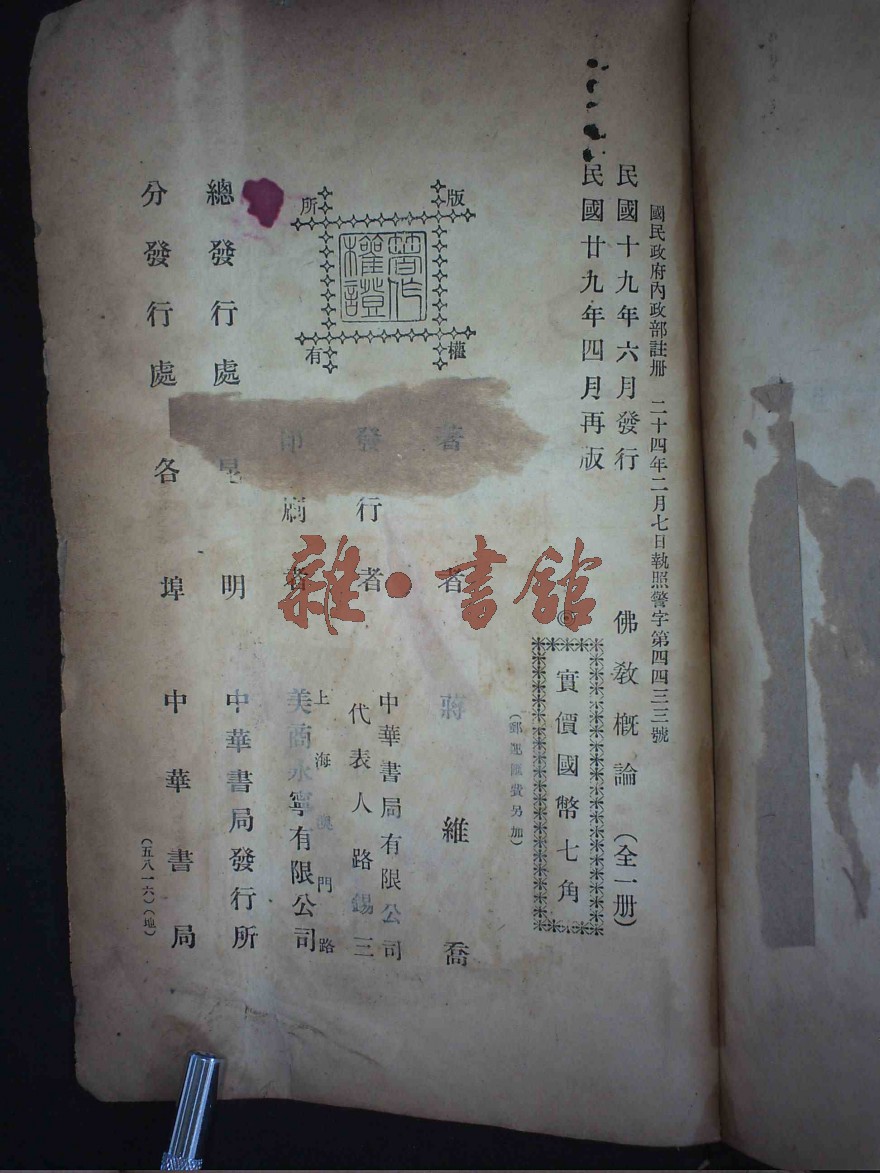 國民政府內政部註册　二十四年二月七日執照警字第四四三三號
民國十九年六月發行
民國廿九年四月再版
佛敎概論　（全一册）
◎實價國幣七角
（郵運匯費另加）
版權所有
著作權證
著者　蔣維喬
發行者　中華書局有限公司
代表人路錫三
印刷者　上海澳門路
美商永寧有限公司
總發行處　昆明　中華書局發行所
分發行處　各埠中華書局
（五八一六）（地）
雜·書館